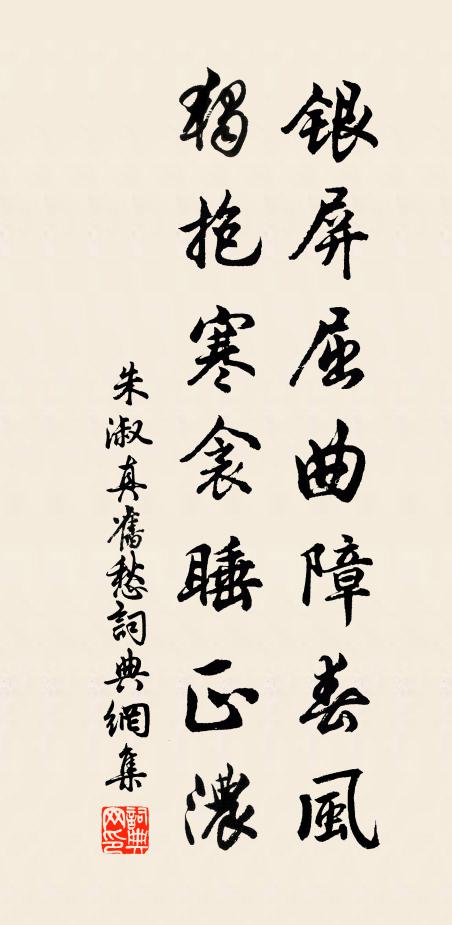 銀屏屈曲障春風
獨抱寒衾睡正濃
朱淑真舊愁詞典網集
詞典网印